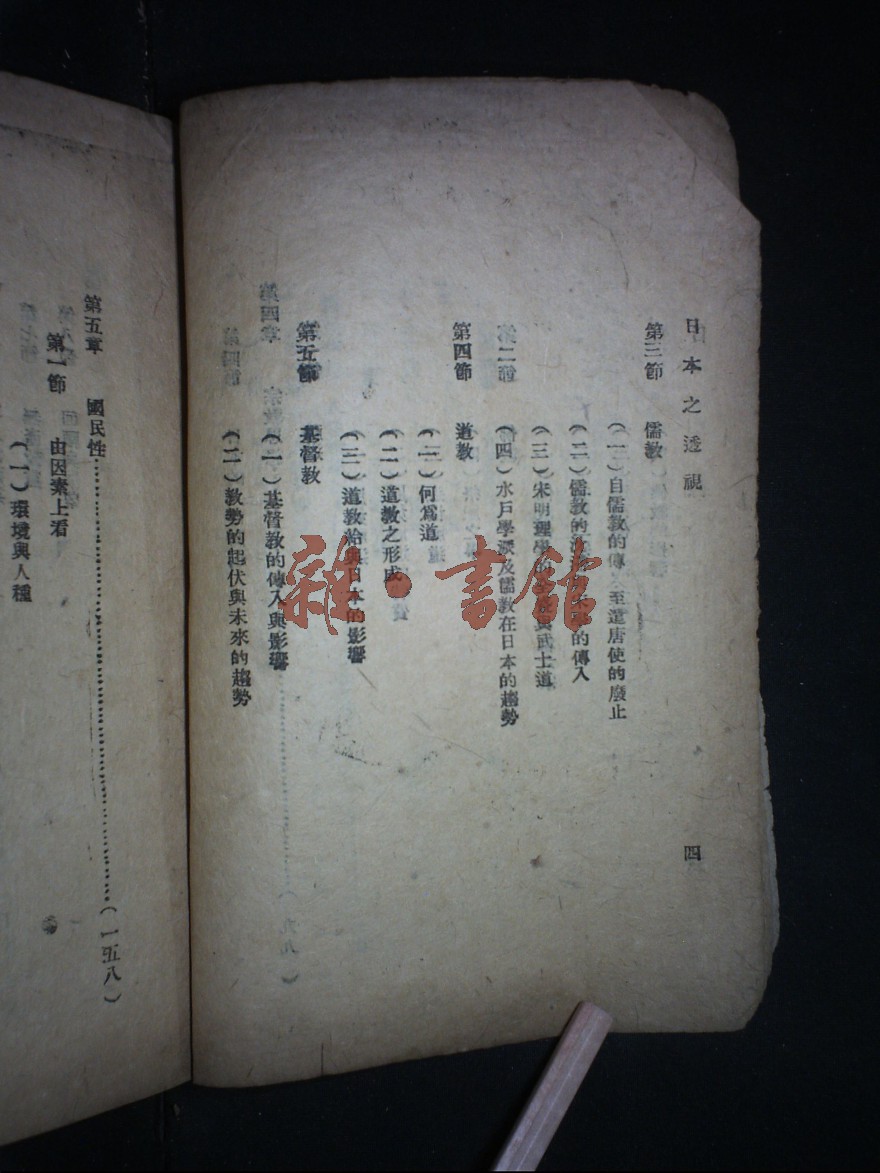 日本之透視
四
第三節 儒教
(一)自儒教的傳 至遣唐使的廢止
(二)儒教的 的傳入
(三)宋明理學的 武士道
(四)水戶學派及儒教在日本的趨勢
第四節 道教
(一)何爲道
(二)道教之形成
(三)道教給與日本的影響
第五節 基督教
(一)基督教的傳入與影響
(二)教勢的起伏與未來的趨勢
第五章 國民性……(一五八)
第一節 由因素上看
(一)環境與人種
雜·書館